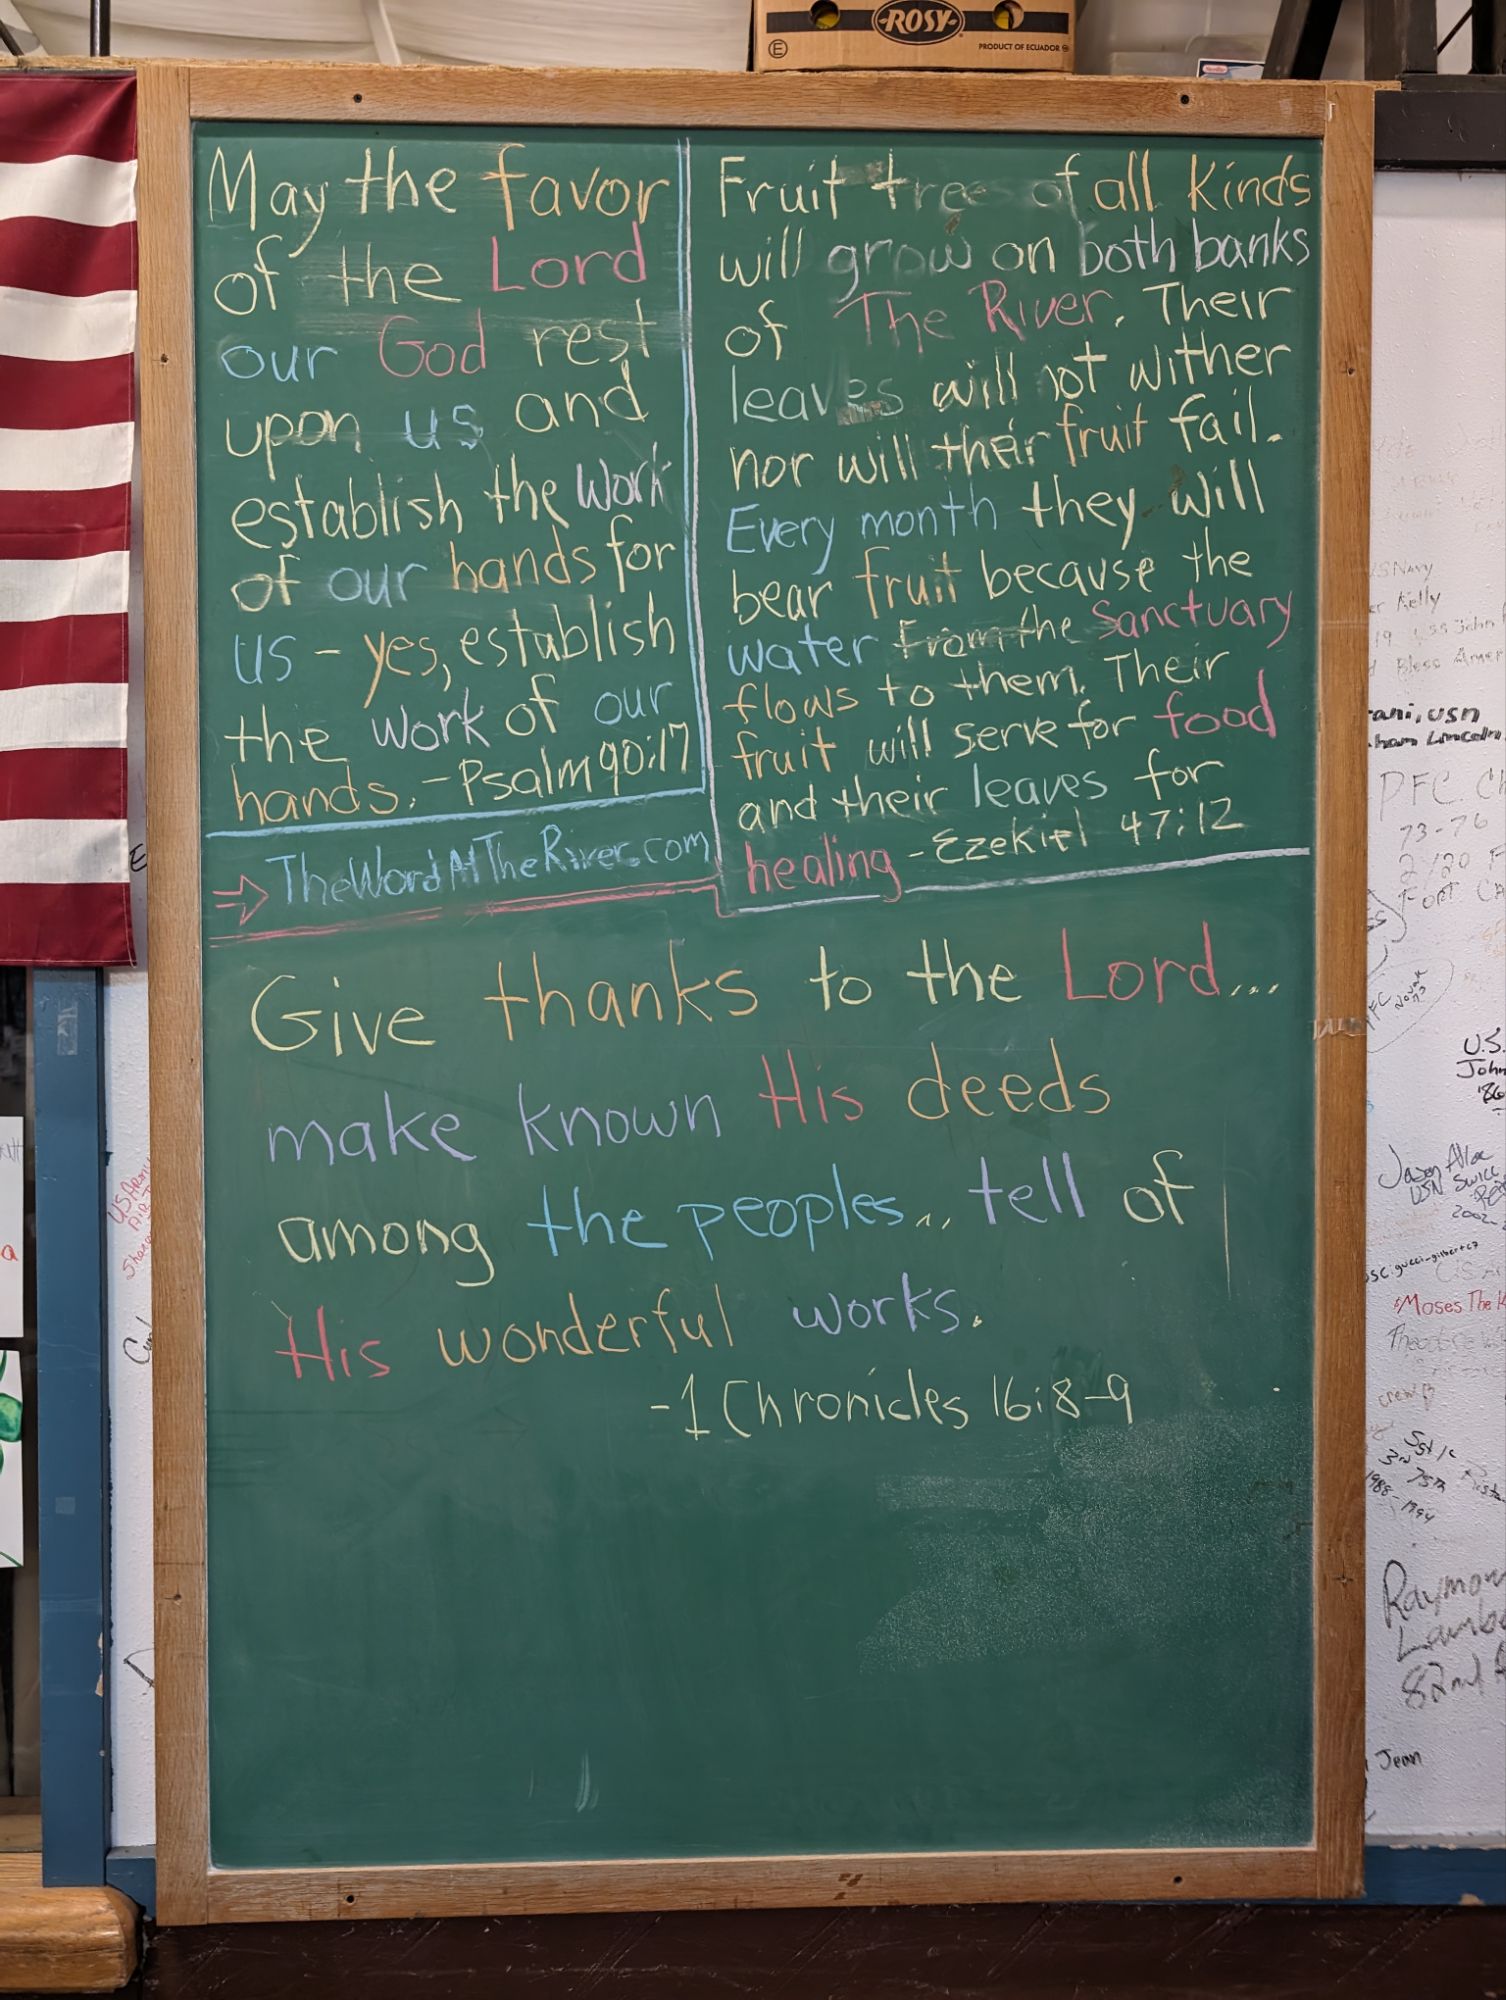 ROSY
PRODUCT OF ECUADOR
May the favor
of the Lord
our God rest
upon us and
establish the work
of our hands for
us - yes, establish
the work of our
hands. - Psalm 90:17
TheWordAtTheRiver.com
Fruit trees of all Kinds
will grow on both banks
of The River. Their
leaves will not wither
nor will their fruit fail.
Every month they will
bear fruit because the
water from the Sanctuary
flows to them. Their
fruit will serve for food
and their leaves for
healing - Ezekiel 47:12
Give thanks to the Lord...
make known His deeds
among the peoples... tell of
His wonderful works.
-1 Chronicles 16:8-9
Kelly
Bless Amer
ani, USN
ham Lincoln
PFC. Ch
73-76
FORT CA
U.S.
John
'86
USN
2002-
Moses The
1988-1994
Raymon
Lamb
82nd
Jean
US Army